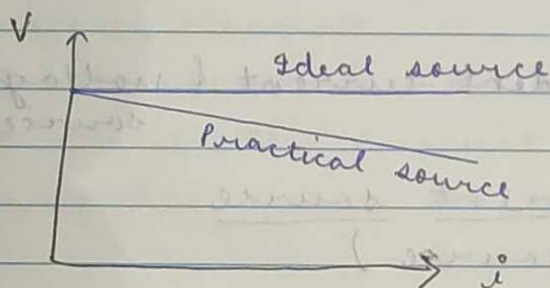 V
Ideal source
Practical source
i